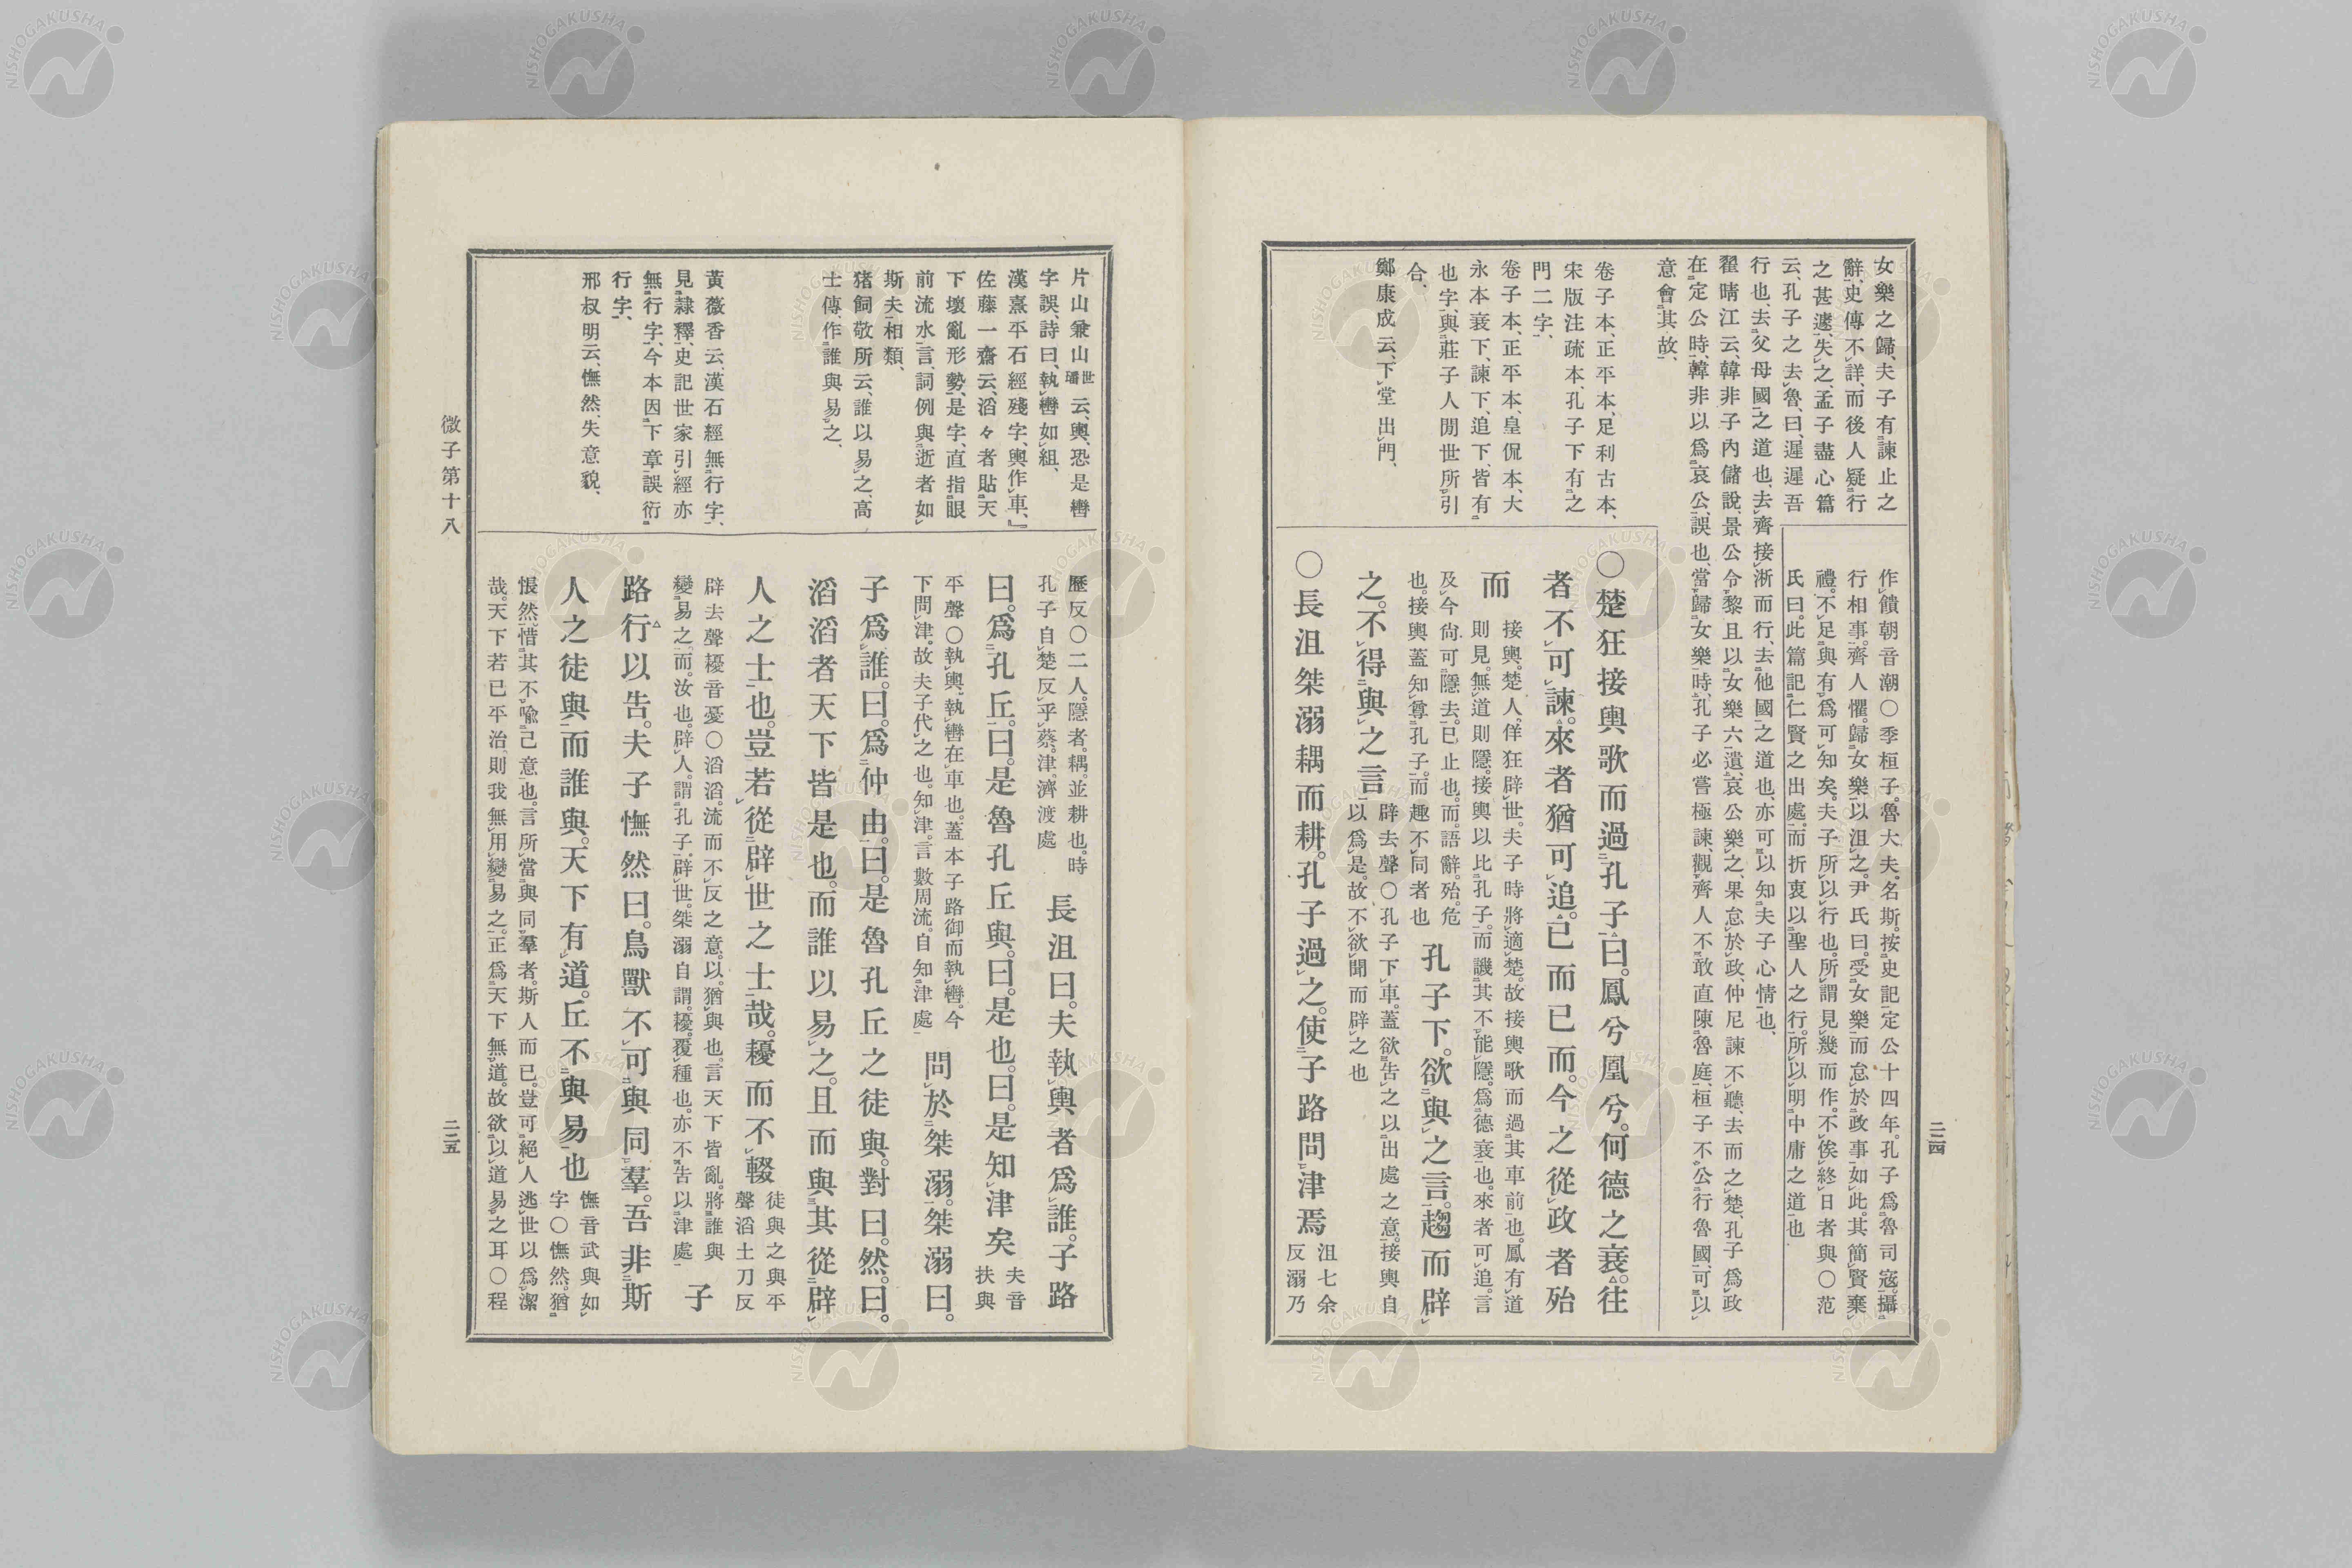 女樂之歸、夫子有諫止之
辭、史傳不詳、而後人疑行
之甚遽、失之、孟子盡心篇
云、孔子之去魯、曰、遲遲吾
行也、去父母國之道也、去齊接淅而行、去他國之道也、亦可以知夫子心情也、
翟晴江云、韓非子內儲說、景公令黎且以女樂六遺哀公、樂之、果怠於政、仲尼諫不聽、去而之楚、孔子爲政
在定公時、韓非以爲哀公、誤也、當歸女樂時、孔子必嘗極諫、觀齊人不敢直陳魯庭、桓子不公行魯國、可以
意會其故、
卷子本、正平本、足利古本、
宋版注疏本、孔子下有之
門二字、
卷子本、正平本、皇侃本、大
永本衰下、諫下、追下、皆有
也字、與莊子人閒世所引
合、
鄭康成云、下堂出門、
作饋朝音潮〇季桓子。魯大夫。名斯。按史記定公十四年。孔子爲魯司寇。攝
行相事。齊人懼。歸女樂以沮之。尹氏曰。受女樂而怠於政事如此。其簡賢棄
禮。不足與有爲可知矣。夫子所以行也。所謂見幾而作。不俟終日者與〇范
氏曰。此篇記仁賢之出處。而折衷以聖人之行。所以明中庸之道也
〇楚狂接輿歌而過孔子曰。鳳兮凰兮。何德之衰。往
者不可諫。來者猶可追。已而已而。今之從政者殆
而
接輿。楚人。佯狂辟世。夫子時將適楚。故接輿歌而過其車前也。鳳有道
則見。無道則隱。接輿以比孔子。而譏其不能隱。爲德衰也。來者可追。言
及今尙可隱去。已止也。而。語辭。殆。危
也。接輿蓋知尊孔子。而趣不同者也
孔子下。欲與之言。趨而辟
之。不得與之言
辟去聲〇孔子下車。蓋欲告之以出處之意。接輿自
以爲是。故不欲聞而辟之也
〇長沮桀溺耦而耕。孔子過之。使子路問津焉
沮七余
反溺乃
二二四
片山兼山世璠云、輿、恐是轡
字誤、詩曰、執轡如組、
漢熹平石經殘字、輿作車、』
佐藤一齋云、滔々者貼天
下壞亂形勢、是字、直指眼
前流水言、詞例與逝者如
斯夫相類、
猪飼敬所云、誰以易之、高
士傳、作誰與易之、
黃薇香云、漢石經無行字、
見隷釋、史記世家引經亦
無行字、今本因下章誤衍
行字、
邢叔明云、憮然、失意貌、
歷反〇二人。隱者。耦。並耕也。時
孔子自楚反乎蔡。津。濟渡處
長沮曰。夫執輿者爲誰。子路
曰。爲孔丘。曰。是魯孔丘與。曰。是也。曰。是知津矣
夫音
扶與
平聲〇執輿。執轡在車也。蓋本子路御而執轡。今
下問津。故夫子代之也。知津。言數周流。自知津處
問於桀溺。桀溺曰。
子爲誰。曰。爲仲由。曰。是魯孔丘之徒與。對曰。然。曰。
滔滔者天下皆是也。而誰以易之。且而與其從辟
人之士也。豈若從辟世之士哉。耰而不輟
徒與之與平
聲滔土刀反
辟去聲耰音憂〇滔滔。流而不反之意。以。猶與也。言天下皆亂。將誰與
變易之。而。汝也。辟人。謂孔子。辟世。桀溺自謂。耰。覆種也。亦不告以津處
子
路行以告。夫子憮然曰。鳥獸不可與同羣。吾非斯
人之徒與而誰與。天下有道。丘不與易也
憮音武與如
字〇憮然。猶
悵然。惜其不喩己意也。言所當與同羣者。斯人而已。豈可絕人逃世以爲潔
哉。天下若已平治。則我無用變易之。正爲天下無道。故欲以道易之耳〇程
微子第十八
二二五